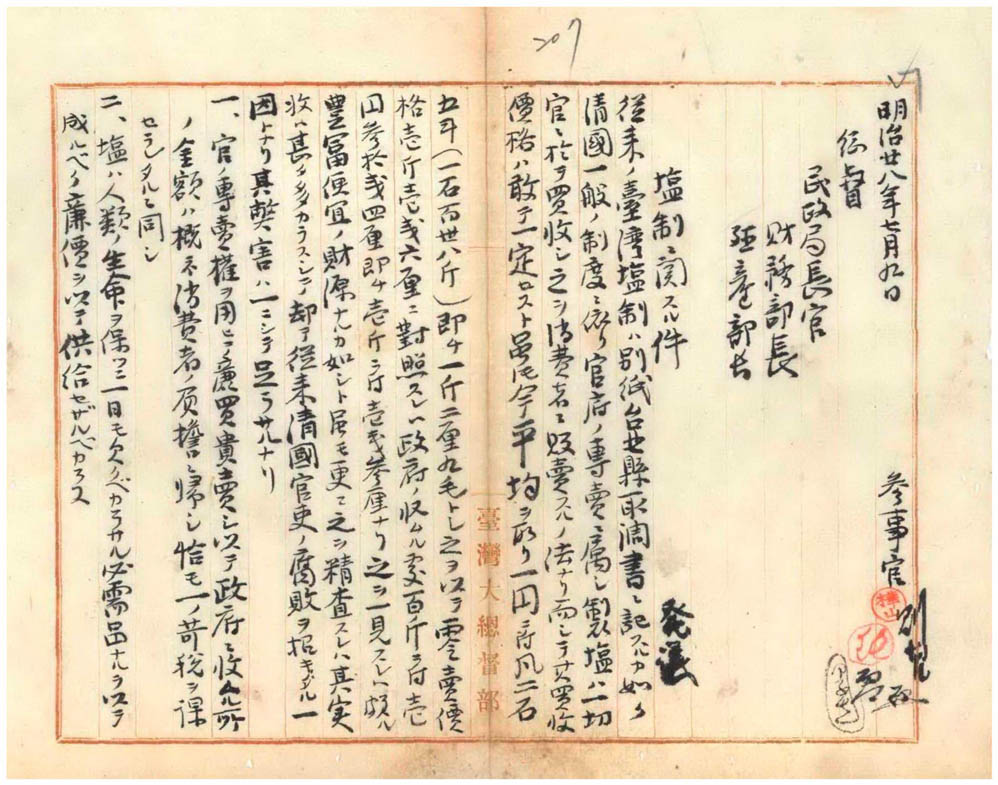 207
明治廿八年七月九日
参事官
総督
民政局長官
財務部長
発議
塩制ニ関スル件
従来ノ臺湾塩制ハ別紙台北縣取調書ニ記スルカ如ク
清國一般ノ制度ニ依リ官府ノ専賣ニ属シ製塩ハ一切
官ニ於テ買收シ之ヲ消費者ニ販賣スルノ法ナリ而シテ其買收
價格ハ敢テ一定セスト雖モ今平均ヲ取リ一円ニ付凡二石
五斗(一石百廿八斤)即チ一斤二厘九毛トシ之ヲ以テ零賣價
格壱斤壱戔六厘ニ對照スレハ政府ノ收ムル処百斤ニ付壱
円参拾弐四厘即チ壱斤ニ付壱戔参厘ナリ之ヲ一見スレハ頗ル
豊冨便宜ノ財源ナルカ如シト虽モ更ニ之ヲ精査スレハ其実
收ハ甚タ多カラスシテ却テ従来清國官吏ノ腐敗ヲ招キタル一
因トナリ其弊害ハ一ニシテ足ラサルナリ
一、官ノ専賣權ヲ用ヒテ廉買貴賣シ以テ政府ニ收ムル所
ノ金額ハ概ネ消費者ノ負擔ニ歸シ恰モ一ノ苛税ヲ課
セラレタルト同シ
二、塩ハ人類ノ生命ヲ保ツニ一日モ欠クベカラサル必需品ナルヲ以テ
成ルベク廉價ヲ以テ供給セザルベカラス
臺灣大總督部